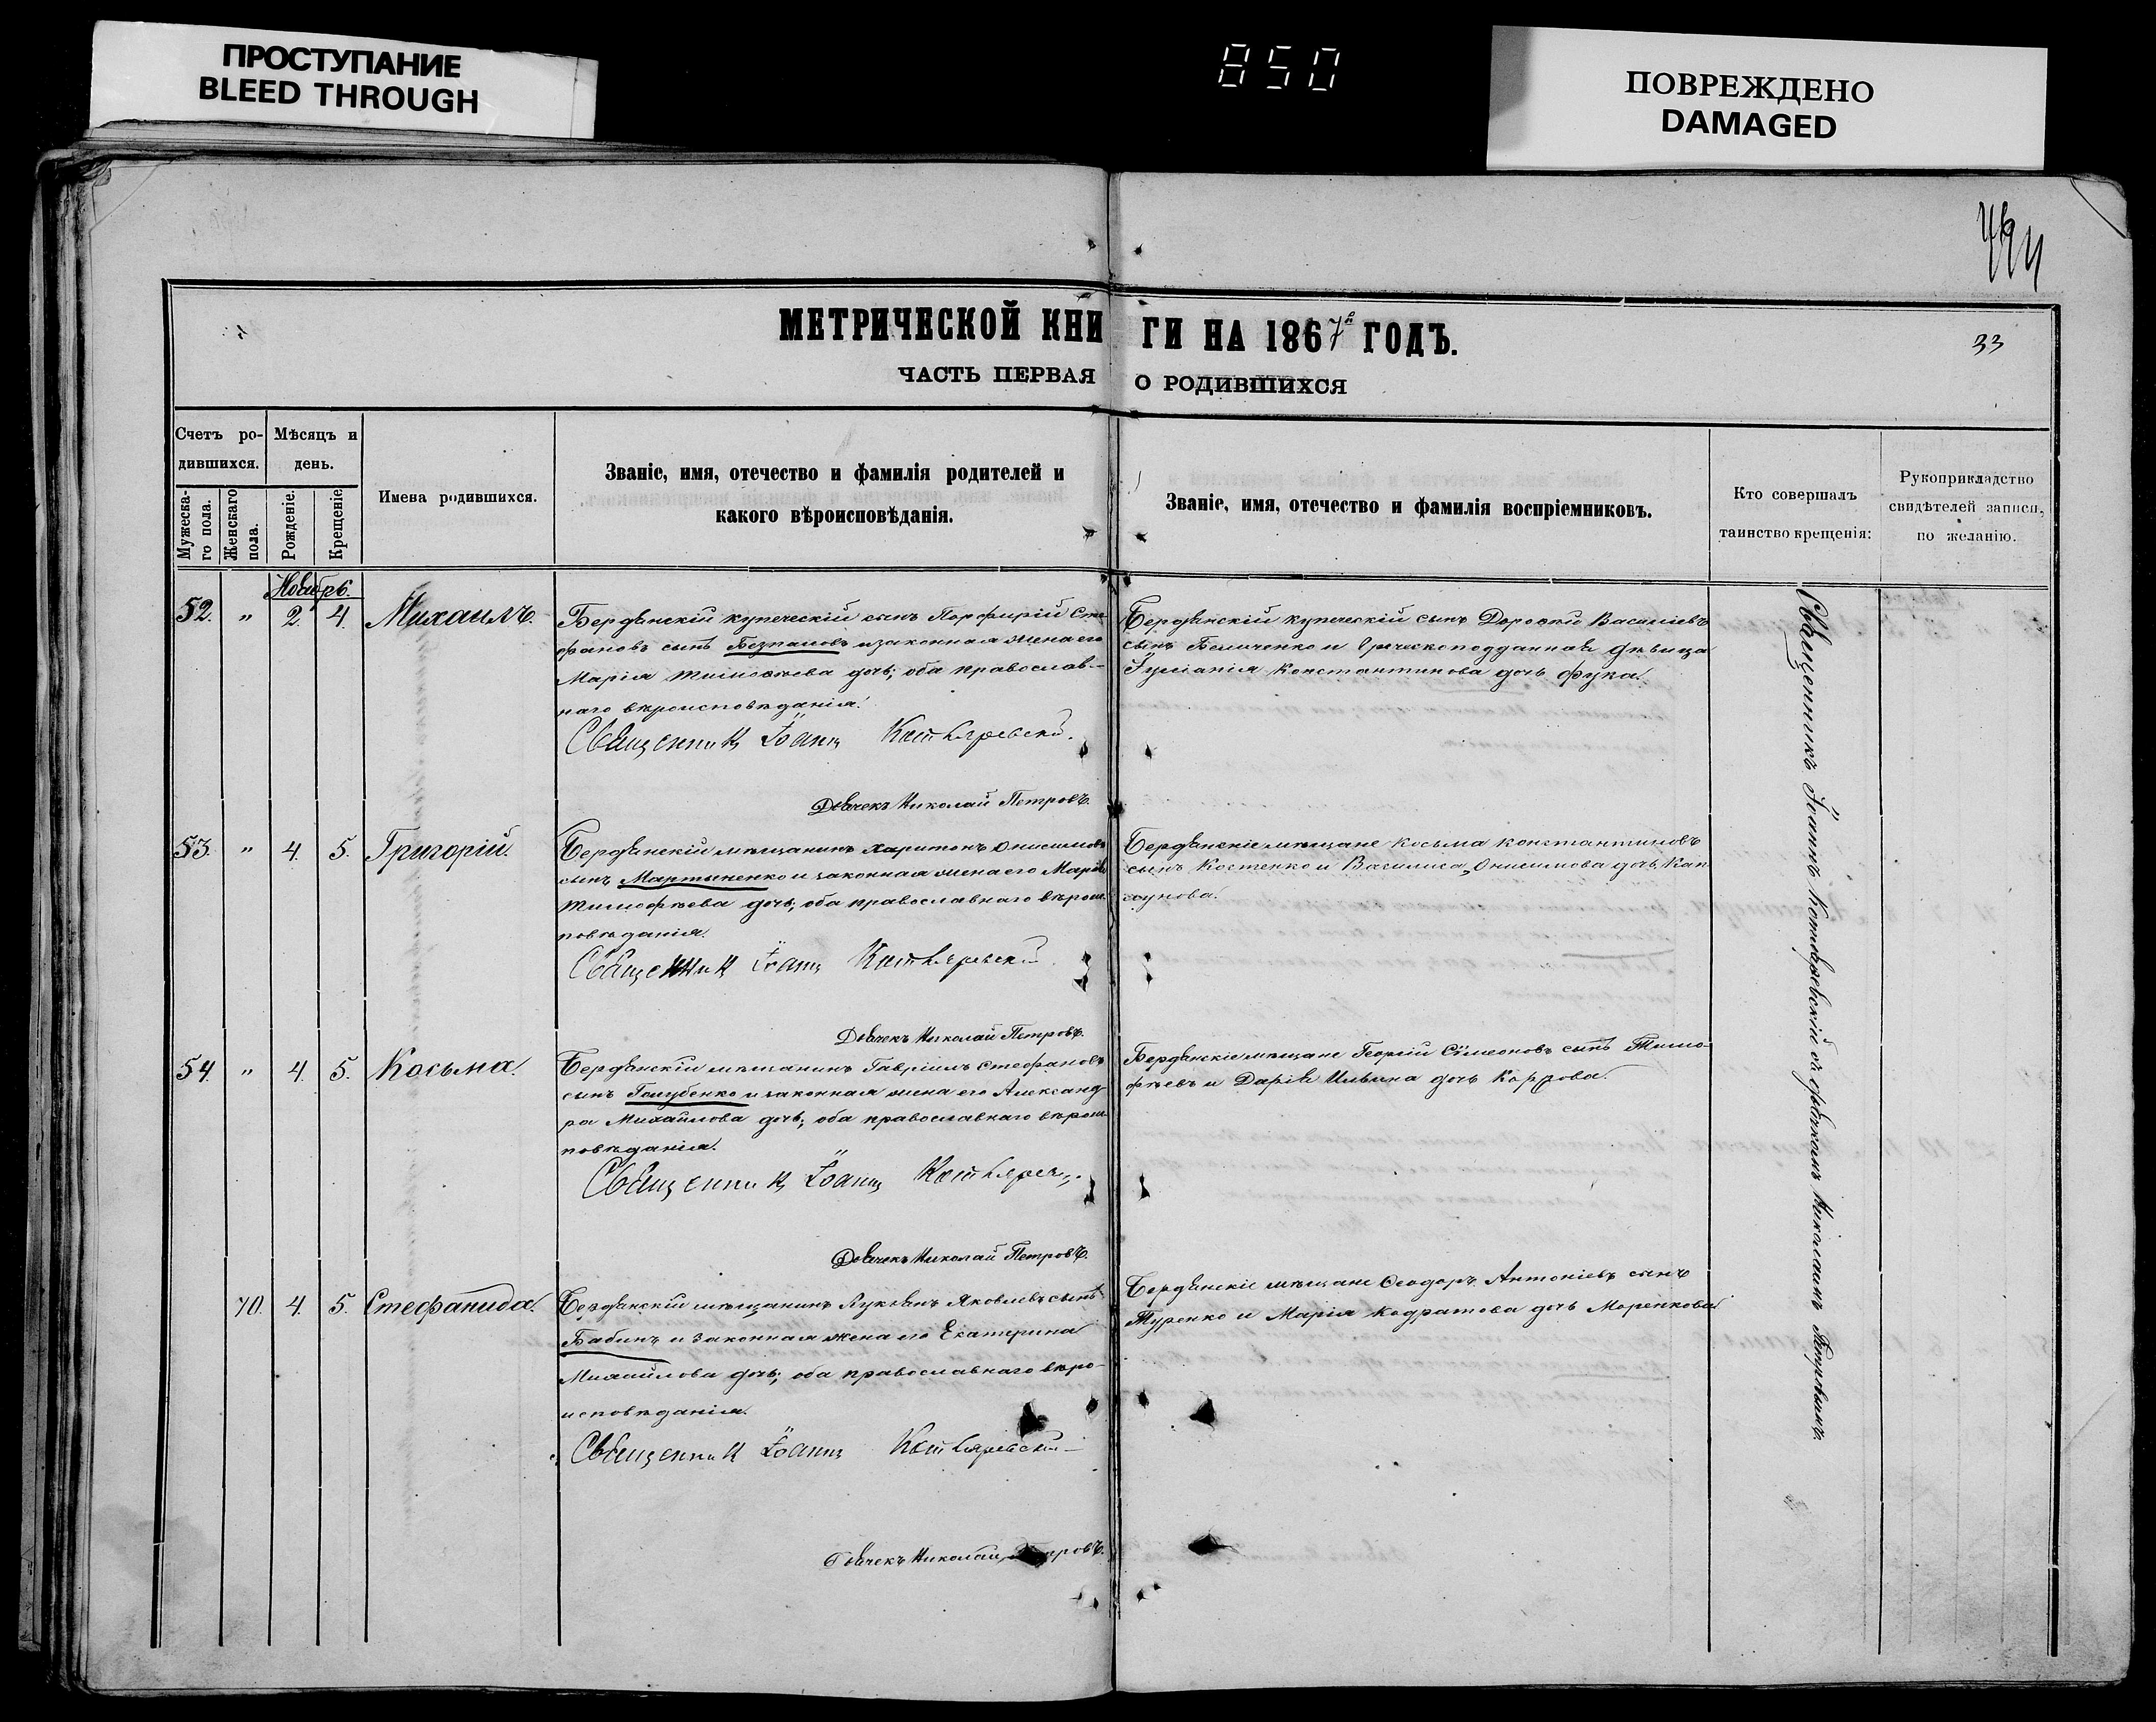 ПРОСТУПАНИЕ
BLEED THROUGH
850
ПОВРЕЖДЕНО
DAMAGED
МЕТРИЧЕСКОЙ КНИГИ НА 1867й ГОДЪ.
33
ЧАСТЬ ПЕРВАЯ О РОДИВШИХСЯ
Счетъ ро-
дившихся.
Мужеска-
го пола.
Женскаго
пола.
Мѣсяцъ и
день.
Рожденіе.
Крещеніе.
Имена родившихся.
Званіе, имя, отечество и фамилія родителей и
какого вѣроисповѣданія.
Званіе, имя, отечество и фамилія воспріемниковъ.
Кто совершалъ
таинство крещенія:
Рукоприкладство
свидѣтелей записи,
по желанію.
Ноябрь.
52. " 2. 4. Михаилъ.
Бердянскій купеческій сынъ Порфирій Сте-
фановъ сынъ Безпаловъ и законная жена его
Марія Тимоѳеева дочь; оба православ-
наго вѣроисповѣданія.
Священникъ Іоаннъ Котляревскій.
Дьячекъ Николай Петровъ.
Бердянскій купеческій сынъ Дороѳей Василіевъ
сынъ Величенко и Греческоподданная дѣвица
Іуліанія Константинова дочь Фука.
53. " 4. 5. Григорій.
Бердянскій мѣщанинъ Харитонъ Онисимовъ
сынъ Мартыненко и законная жена его Марія
Тимофѣева дочь; оба православнаго вѣроис
повѣданія.
Священникъ Іоаннъ Котляревскій.
Дьячекъ Николай Петровъ.
Бердянскіе мѣщане Косьма Константиновъ
сынъ Костенко и Василиса Онисимова дочь Кап
сунова.
54. " 4. 5. Косьма.
Бердянскій мѣщанинъ Гавріилъ Стефановъ
сынъ Голубенко и законная жена его Александ
ра Михайлова дочь; оба православнаго вѣроис
повѣданія.
Священникъ Іоаннъ Котляревс.
Дьячекъ Николай Петровъ.
Бердянскіе мѣщане Георгій Сѵмеоновъ сынъ Тимо-
фѣевъ и Дарія Ильина дочь Карпова.
70. 4. 5. Стефанида.
Бердянскій мѣщанинъ Лукіянъ Яковлевъ сынъ
Бабинъ и законная жена его Екатерина
Михайлова дочь; оба православнаго вѣро-
исповѣданія.
Священникъ Іоаннъ Котляревскій
Дьячекъ Николай Петровъ.
Бердянскіе мѣщане Ѳеодоръ Антоніевъ сынъ
Туренко и Марія Кодратова дочь Моренкова.
Священникъ Іоаннъ Котляревскій съ дьячкомъ Николаемъ Петровымъ.